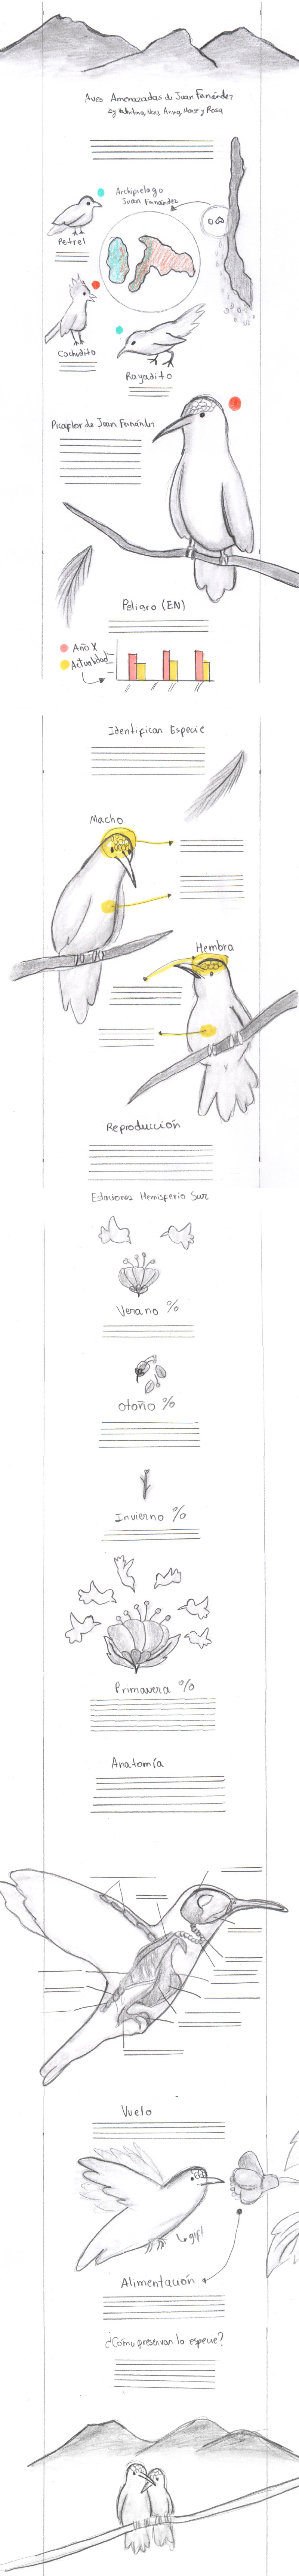 Aves Amenazadas de Juan Fernández
by Valentina, Noci, Anna, Mane y Rosa
Archipiélago
Juan Fernández
Petrel
Cachudito
Rayadito
Picaflor de Juan Fernández
Peligro (EN)
Año X
Actualidad
Identifican Especie
Macho
Hembra
Reproducción
Estaciones Hemisferio Sur
Verano %
otoño %
Invierno %
Primavera %
Anatomía
Vuelo
gif!
Alimentación
¿Cómo preservan la especie?